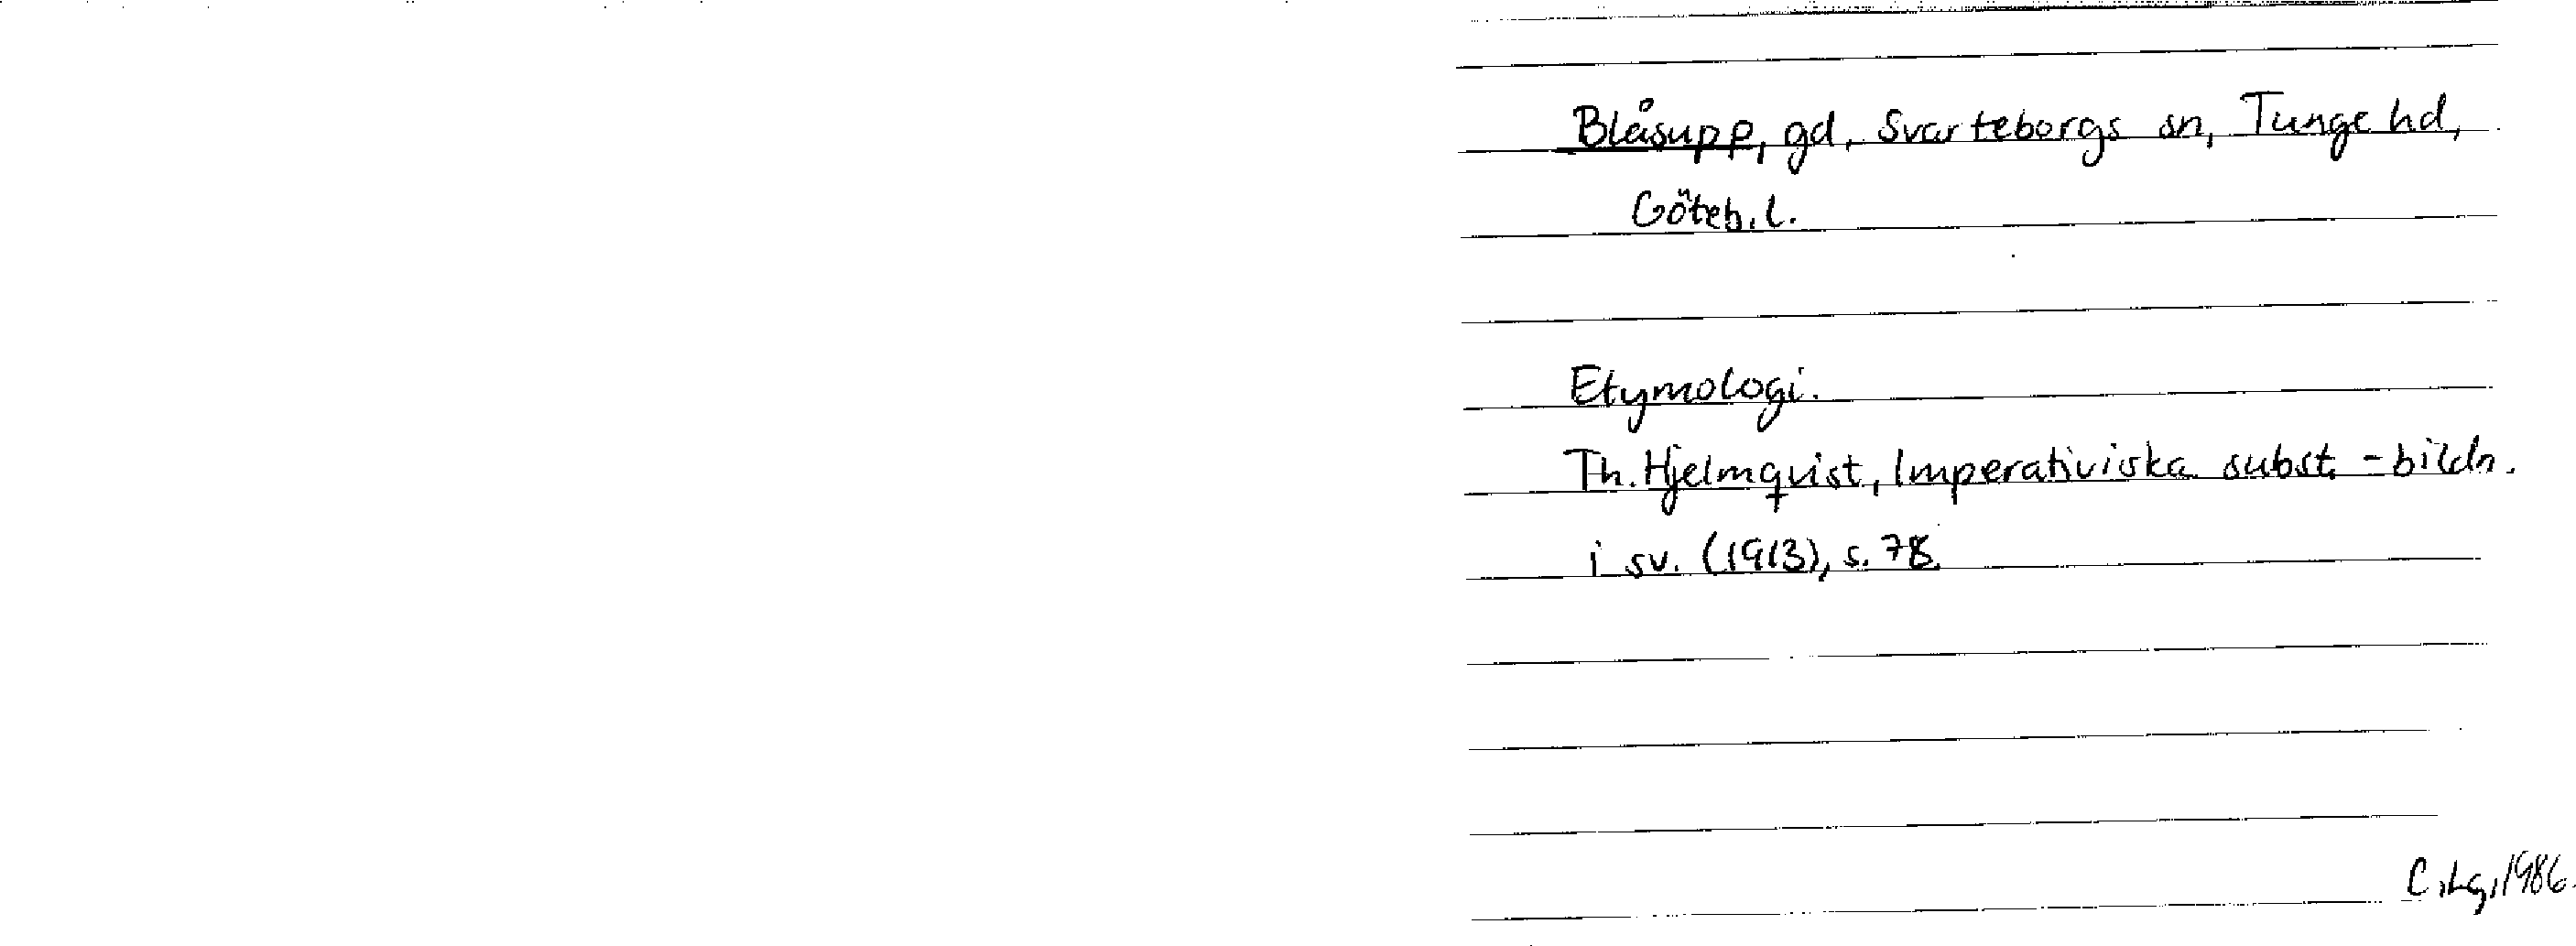 Blåsupp, gd, Svarteborgs sn, Tunge hd,
Göteb. l.
Etymologi.
Th. Hjelmqvist, Imperativiska subst.-bildn.
i sv. (1913), s. 78.
C. Lg, 1986.